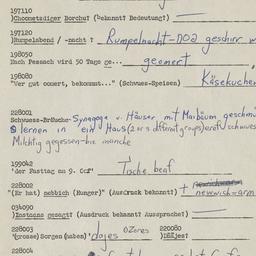 197110
)Choometzdiger Borchut (bekannt? Bedeutung?)
197120
)Rumpelabend / -nacht ? Rumpelnacht - noa geschirr w
198050
Nach Pessach wird 50 Tage ge... geomert
198080
"Wer gut oomert, bekommt..." (Schwues-Speisen) Käsekuchen
228001
Schwuess-Bräuche- Synagoge u. Häuser mit Maibäum geschmü
lernen in ein Haus (2 or 3 different groups) schwues
Milchtig gegessen - manche
199042
'der Fasttag am 9. Oof' Tische beaf
228002
"(Er hat) nebbich (Hunger)" (Ausdruck bekannt?) newwish = arm
034090
)Inszoons gesogt? (Ausdruck bekannt? Aussprache?)
228003
'(grosse)Sorgen(haben)' dajes OZores 220080
228004